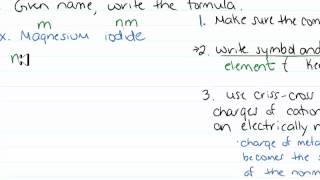 Given name, write the formula.
m nm
x. Magnesium iodide
n:
1. Make sure the com
→2. write symbol and
element (
3. use criss-cross
charges of cation
an electrically n
·charge of meta
becomes the s
of the nonm